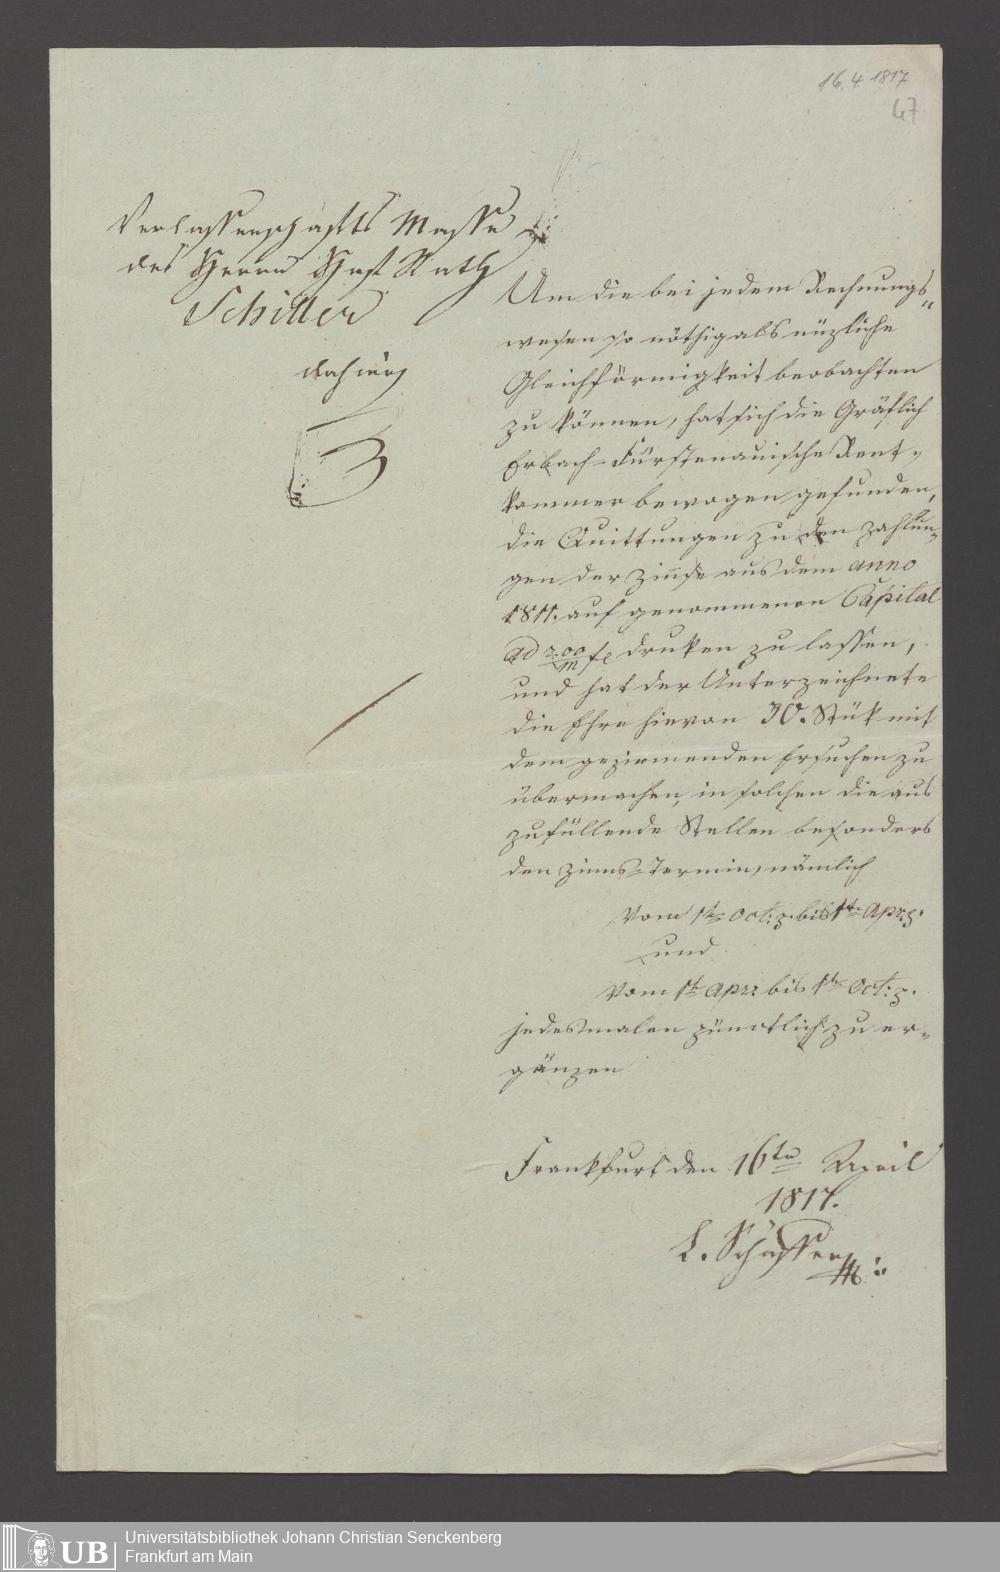 16.4.1817
47
Verlassenschafts Masse
des Herrn Hof Rath
Schiller
dahier
Um die bei jedem Rechnungs-
wesen so nöthig als nüzliche
Gleichförmigkeit beobachten
zu können, hat sich die Gräflich
Erbach-Fürstenauische Rent-
kammer bewogen gefunden,
die Quittungen zu den Zahlun-
gen der Zinnse aus dem anno
1811. aufgenommenen Capital
ad 200/m f druken zu lassen,
und hat der Unterzeichnete
die Ehre hievon 30. Stük mit
dem geziemenden Ersuchen zu
übermachen, in solchen die aus
zufüllende Stellen besonders
den Zinns-Termin, nämlich
Vom 1ten Oct: bis 1ten Apr:
und
Vom 1ten Apr: bis 1ten Oct:
jedesmalen pünctlich zu er-
gänzen
Frankfurt den 16ten April
1817.
L. Schäffer
UB
Universitätsbibliothek Johann Christian Senckenberg
Frankfurt am Main